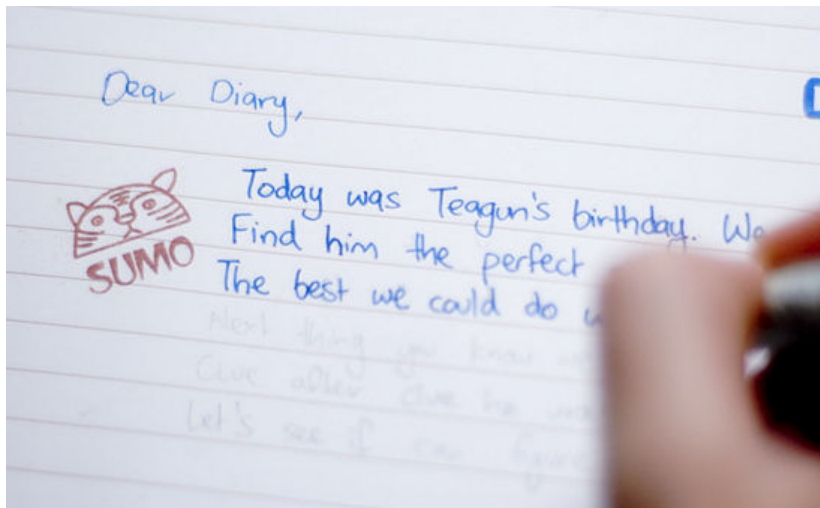 Dear Diary,
Today was Teagun's birthday. We
Find him the perfect
The best we could do
SUMO
Next thing you know
Clue after clue he was
Let's see if can figure